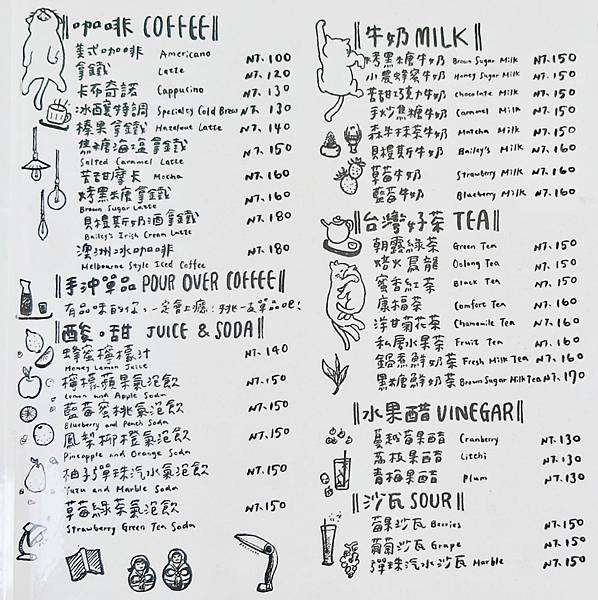 咖啡 COFFEE
美式咖啡 Americano NT.100
拿鐵 Latte NT.120
卡布奇諾 Cappucino NT.130
冰釀特調 Specialty Cold Brew NT.130
榛果拿鐵 Hazelnut Latte NT.140
焦糖海鹽拿鐵 NT.150
Salted Caramel Latte
苦甜摩卡 Mocha NT.160
烤黑糖拿鐵 NT.160
Brown Sugar Latte
貝禮斯奶酒拿鐵 NT.180
Bailey's Irish Cream Latte
澳洲冰咖啡 NT.180
Melbourne Style Iced Coffee
手沖單品 POUR OVER COFFEE
有品味的你,一定會上癮!挑一支單品吧!
酸。甜 JUICE & SODA
蜂蜜檸檬汁 NT.140
Honey Lemon Juice
檸檬蘋果氣泡飲 NT.150
Lemon and Apple Soda
藍莓蜜桃氣泡飲 NT.150
Blueberry and Peach Soda
鳳梨柳橙氣泡飲 NT.150
Pineapple and Orange Soda
柚子彈珠汽水氣泡飲 NT.150
Yuzu and Marble Soda
草莓綠茶氣泡飲 NT.150
Strawberry Green Tea Soda
牛奶 MILK
烤黑糖牛奶 Brown Sugar Milk NT.150
小農蜂蜜牛奶 Honey Sugar Milk NT.150
苦甜巧克力牛奶 Chocolate Milk NT.150
手炒焦糖牛奶 Caramel Milk NT.150
森半抹茶牛奶 Matcha Milk NT.150
貝禮斯牛奶 Bailey's Milk NT.160
草莓牛奶 Strawberry Milk NT.160
藍莓牛奶 Blueberry Milk NT.160
台灣好茶 TEA
朝露綠茶 Green Tea NT.150
焙火烏龍 Oolong Tea NT.150
蜜香紅茶 Black Tea NT.150
康福茶 Comfort Tea NT.160
洋甘菊花茶 Chamomile Tea NT.160
私房水果茶 Fruit Tea NT.160
鍋煮鮮奶茶 Fresh Milk Tea NT.160
黑糖鮮奶茶 Brown Sugar Milk Tea NT.170
水果醋 VINEGAR
蔓越莓果醋 Cranberry NT.130
荔枝果醋 Litchi NT.130
青梅果醋 Plum NT.130
沙瓦 SOUR
莓果沙瓦 Berries NT.150
葡萄沙瓦 Grape NT.150
彈珠汽水沙瓦 Marble NT.150